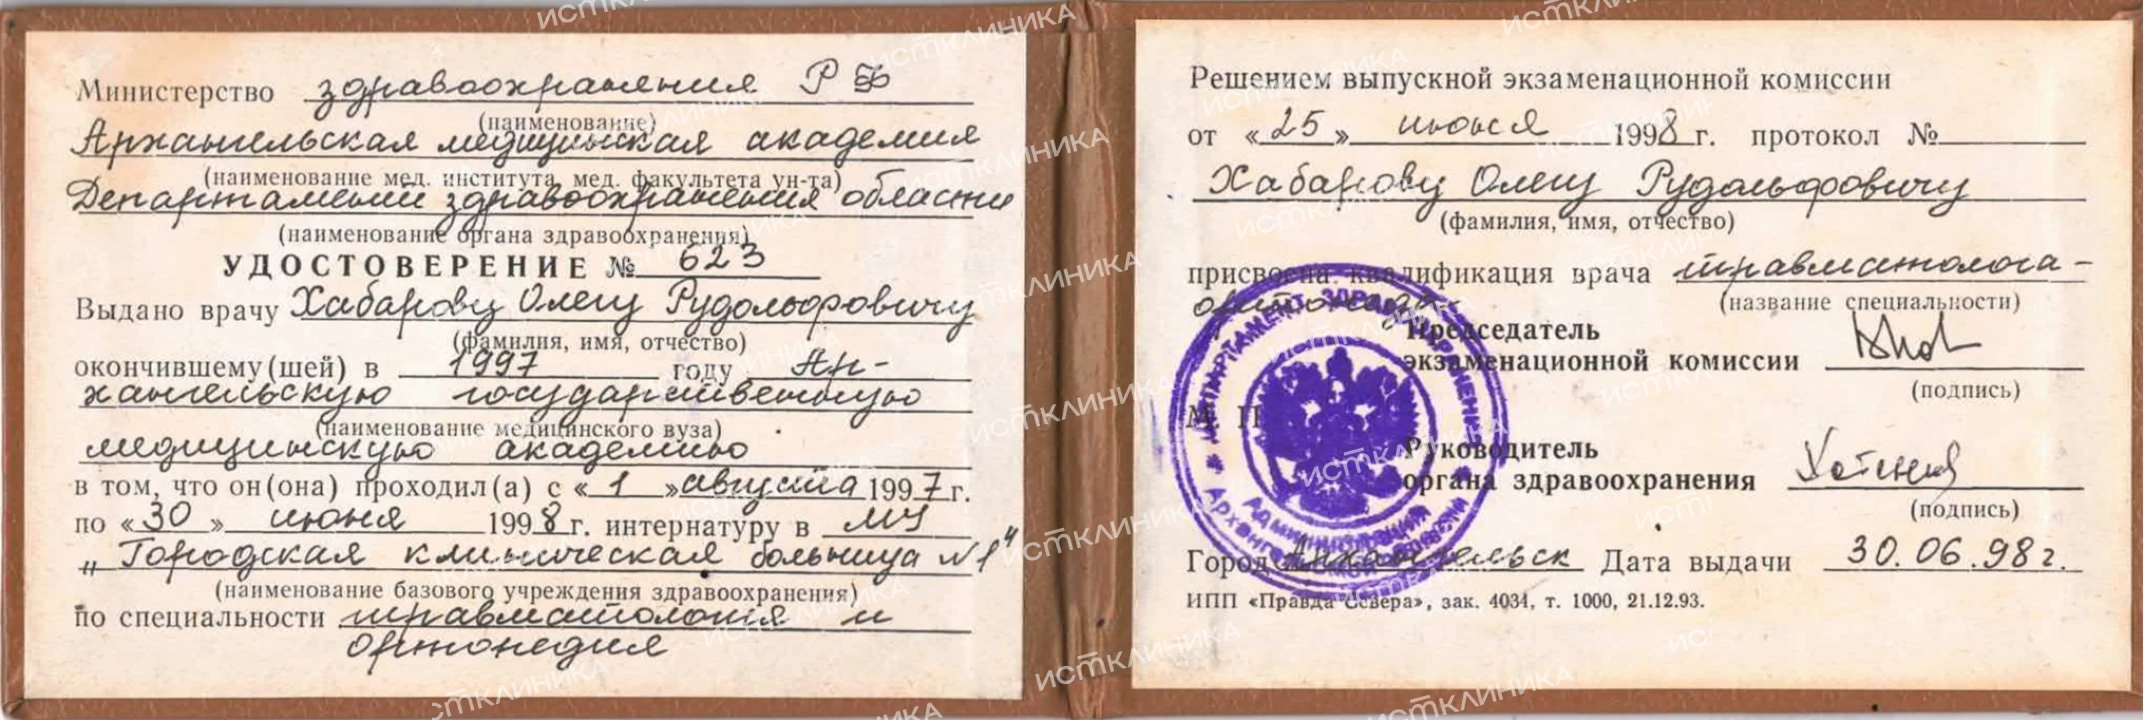 Министерство здравоохранения РФ
(наименование)
Архангельская медицинская академия
(наименование мед. института, мед. факультета ун-та)
Департамент здравоохранения области
(наименование органа здравоохранения)
УДОСТОВЕРЕНИЕ № 623
Выдано врачу Хабарову Олегу Рудольфовичу
(фамилия, имя, отчество)
окончившему(шей) в 1997 году Ар-
хангельскую государственную
(наименование медицинского вуза)
медицинскую академию
в том, что он(она) проходил(а) с «1» августа 1997 г.
по «30» июня 1998 г. интернатуру в МУ
"Городская клиническая больница №1"
(наименование базового учреждения здравоохранения)
по специальности травматология и
ортопедия
Решением выпускной экзаменационной комиссии
от «25» июня 1998 г. протокол №
Хабарову Олегу Рудольфовичу
(фамилия, имя, отчество)
присвоена квалификация врача травматолога-
(название специальности)
ортопеда
Председатель
экзаменационной комиссии
(подпись)
М. П.
Руководитель
органа здравоохранения
(подпись)
Город Архангельск Дата выдачи 30.06.98г.
ИПП «Правда Севера», зак. 4034, т. 1000, 21.12.93.
ДЕПАРТАМЕНТ ЗДРАВООХРАНЕНИЯ
Администрация
Архангельской области
ИСТКЛИНИКА